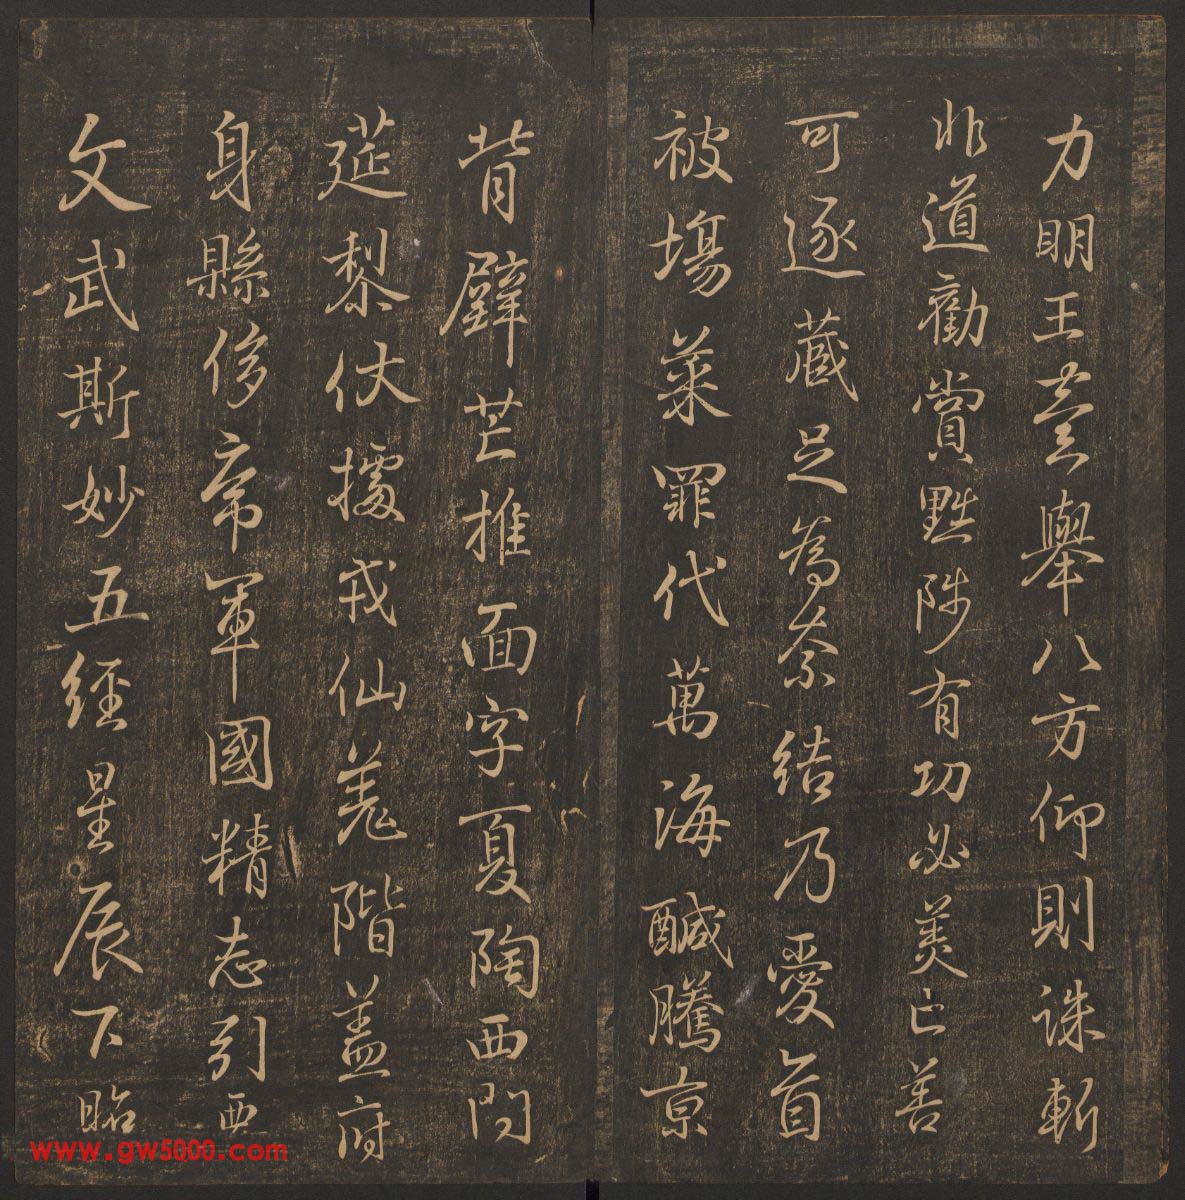 力明王臺舉八方仰則誅斬
非道勸賞黜陟有功必美亡善
可逐藏足為奈結乃愛首
被場菜罪代萬海鹹騰京
背璧芒推面字夏陶西問
莚黎伏據戎仙羌階蓋府
身縣侈帝軍國精志引西
文武斯妙五經星辰下昭
www.gw5000.com